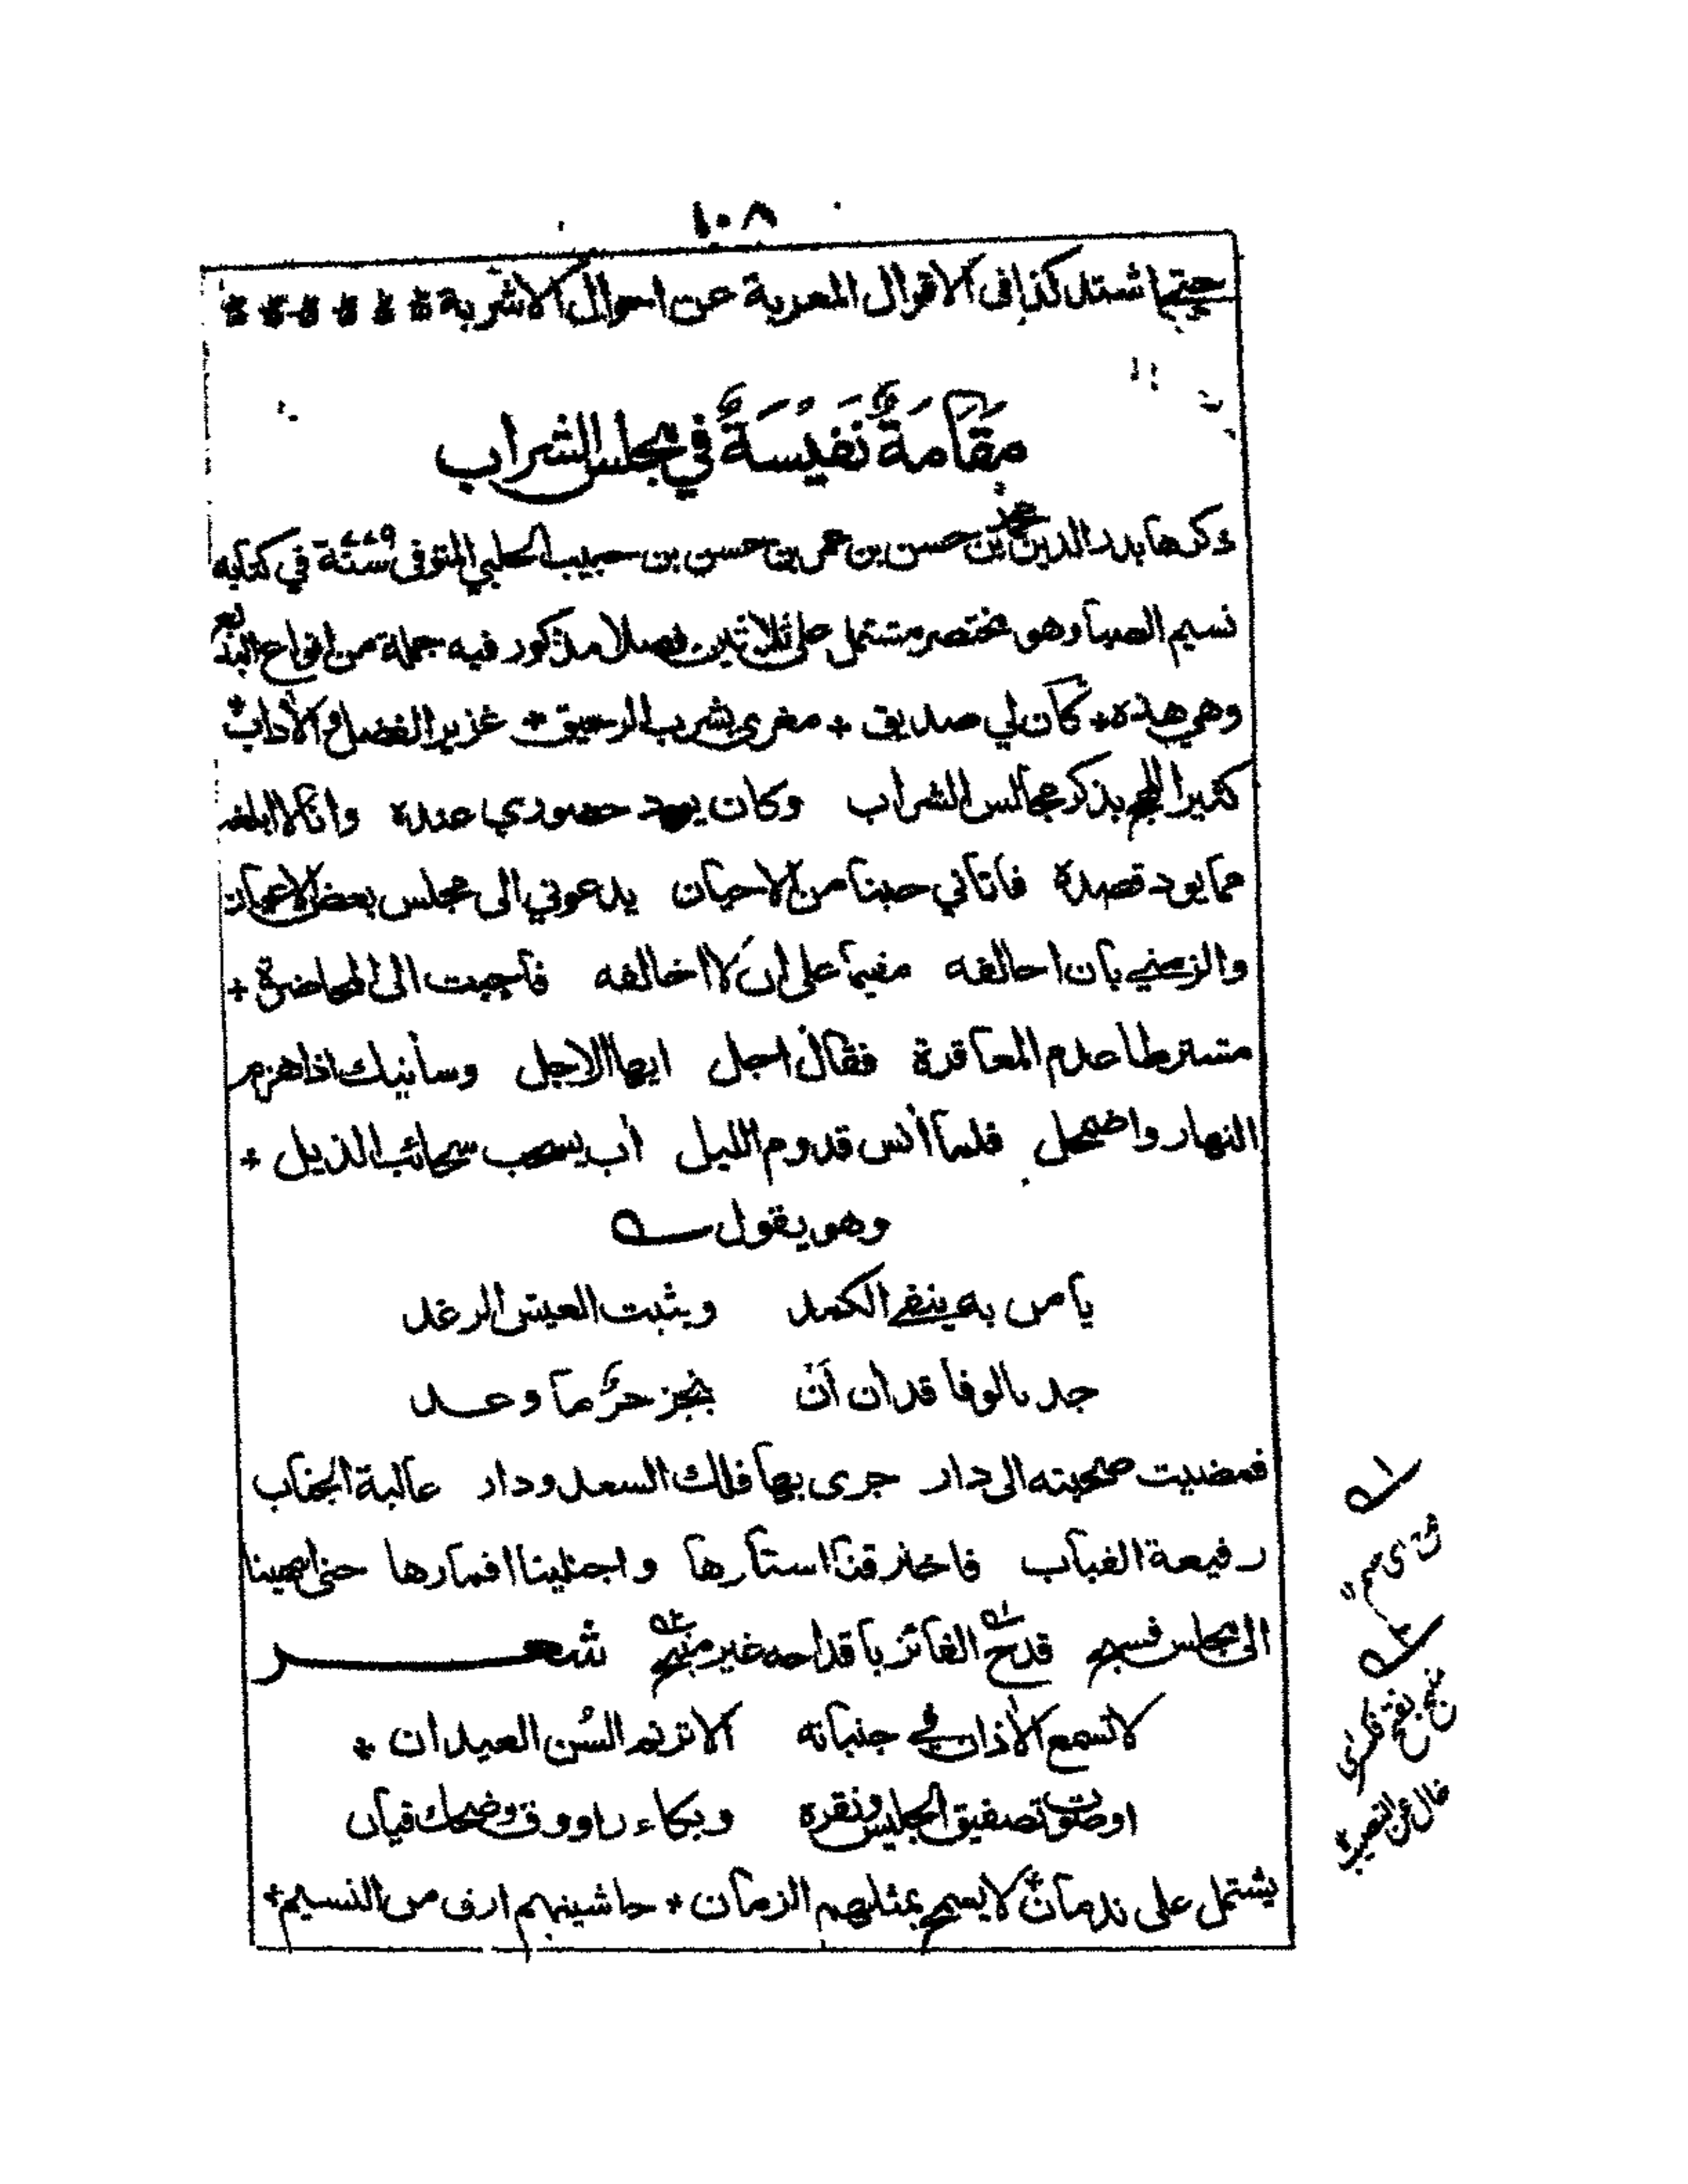 ١٠٨
حتى اشتد كذا فى الاقوال المعربة عن احوال الاشربة
مَقَامَةٌ نَفِيْسَةٌ في مجلس الشراب
ذكرها بدر الدين محمد بن حسن بن عمر بن حسن بن حبيب الحلبي المتوفى سنة ٧٧٩ في كتابه
نسيم الصبا وهو مختصر مشتمل على ثلاثين فصلا مذكور فيه جملة من انواع البديع
وهي هذه * كان لي صديق * مغرى بشرب الرحيق * غزير الفضل والأداب *
كثير اللهج بذكر مجالس الشراب وكان يود حضوري عنده وانا لا ابلغه
مما يود قصده فاتاني حينا من الاحيان يدعوني الى مجلس بعض الاعيان
والزمني بان احالفه مقيما على ان لا اخالفه فاجبت الى المحاضرة *
مشترطا عدم المعاقرة فقال اجل ايها الاجل وسأتيك اذا هزم
النهار واضمحل فلما أنس قدوم الليل أب يسحب سحائب الذيل *
وهو يقول
يا من به ينفى الكمد ويثبت العيش الرغد
جد بالوفا قد ان أن ينجز حرّ ما وعد
فمضيت صحبته الى دار جرى بها فلك السعد ودار عالية الجناب
رفيعة القباب فاخترقنا استارها واجتلينا اقمارها حتى انتهينا
الى مجلس فسيح قدح الفائز باقداحه غير منيح شعر
لا تسمع الأذان في جنباته الا ترنم السُن العيدان *
او صوت تصفيق الجليس ونقره وبكاء راووق وضحك قيان
يشتمل على ندمان * لا يسمح بمثلهم الزمان * حاشيتهم ارق من النسيم *